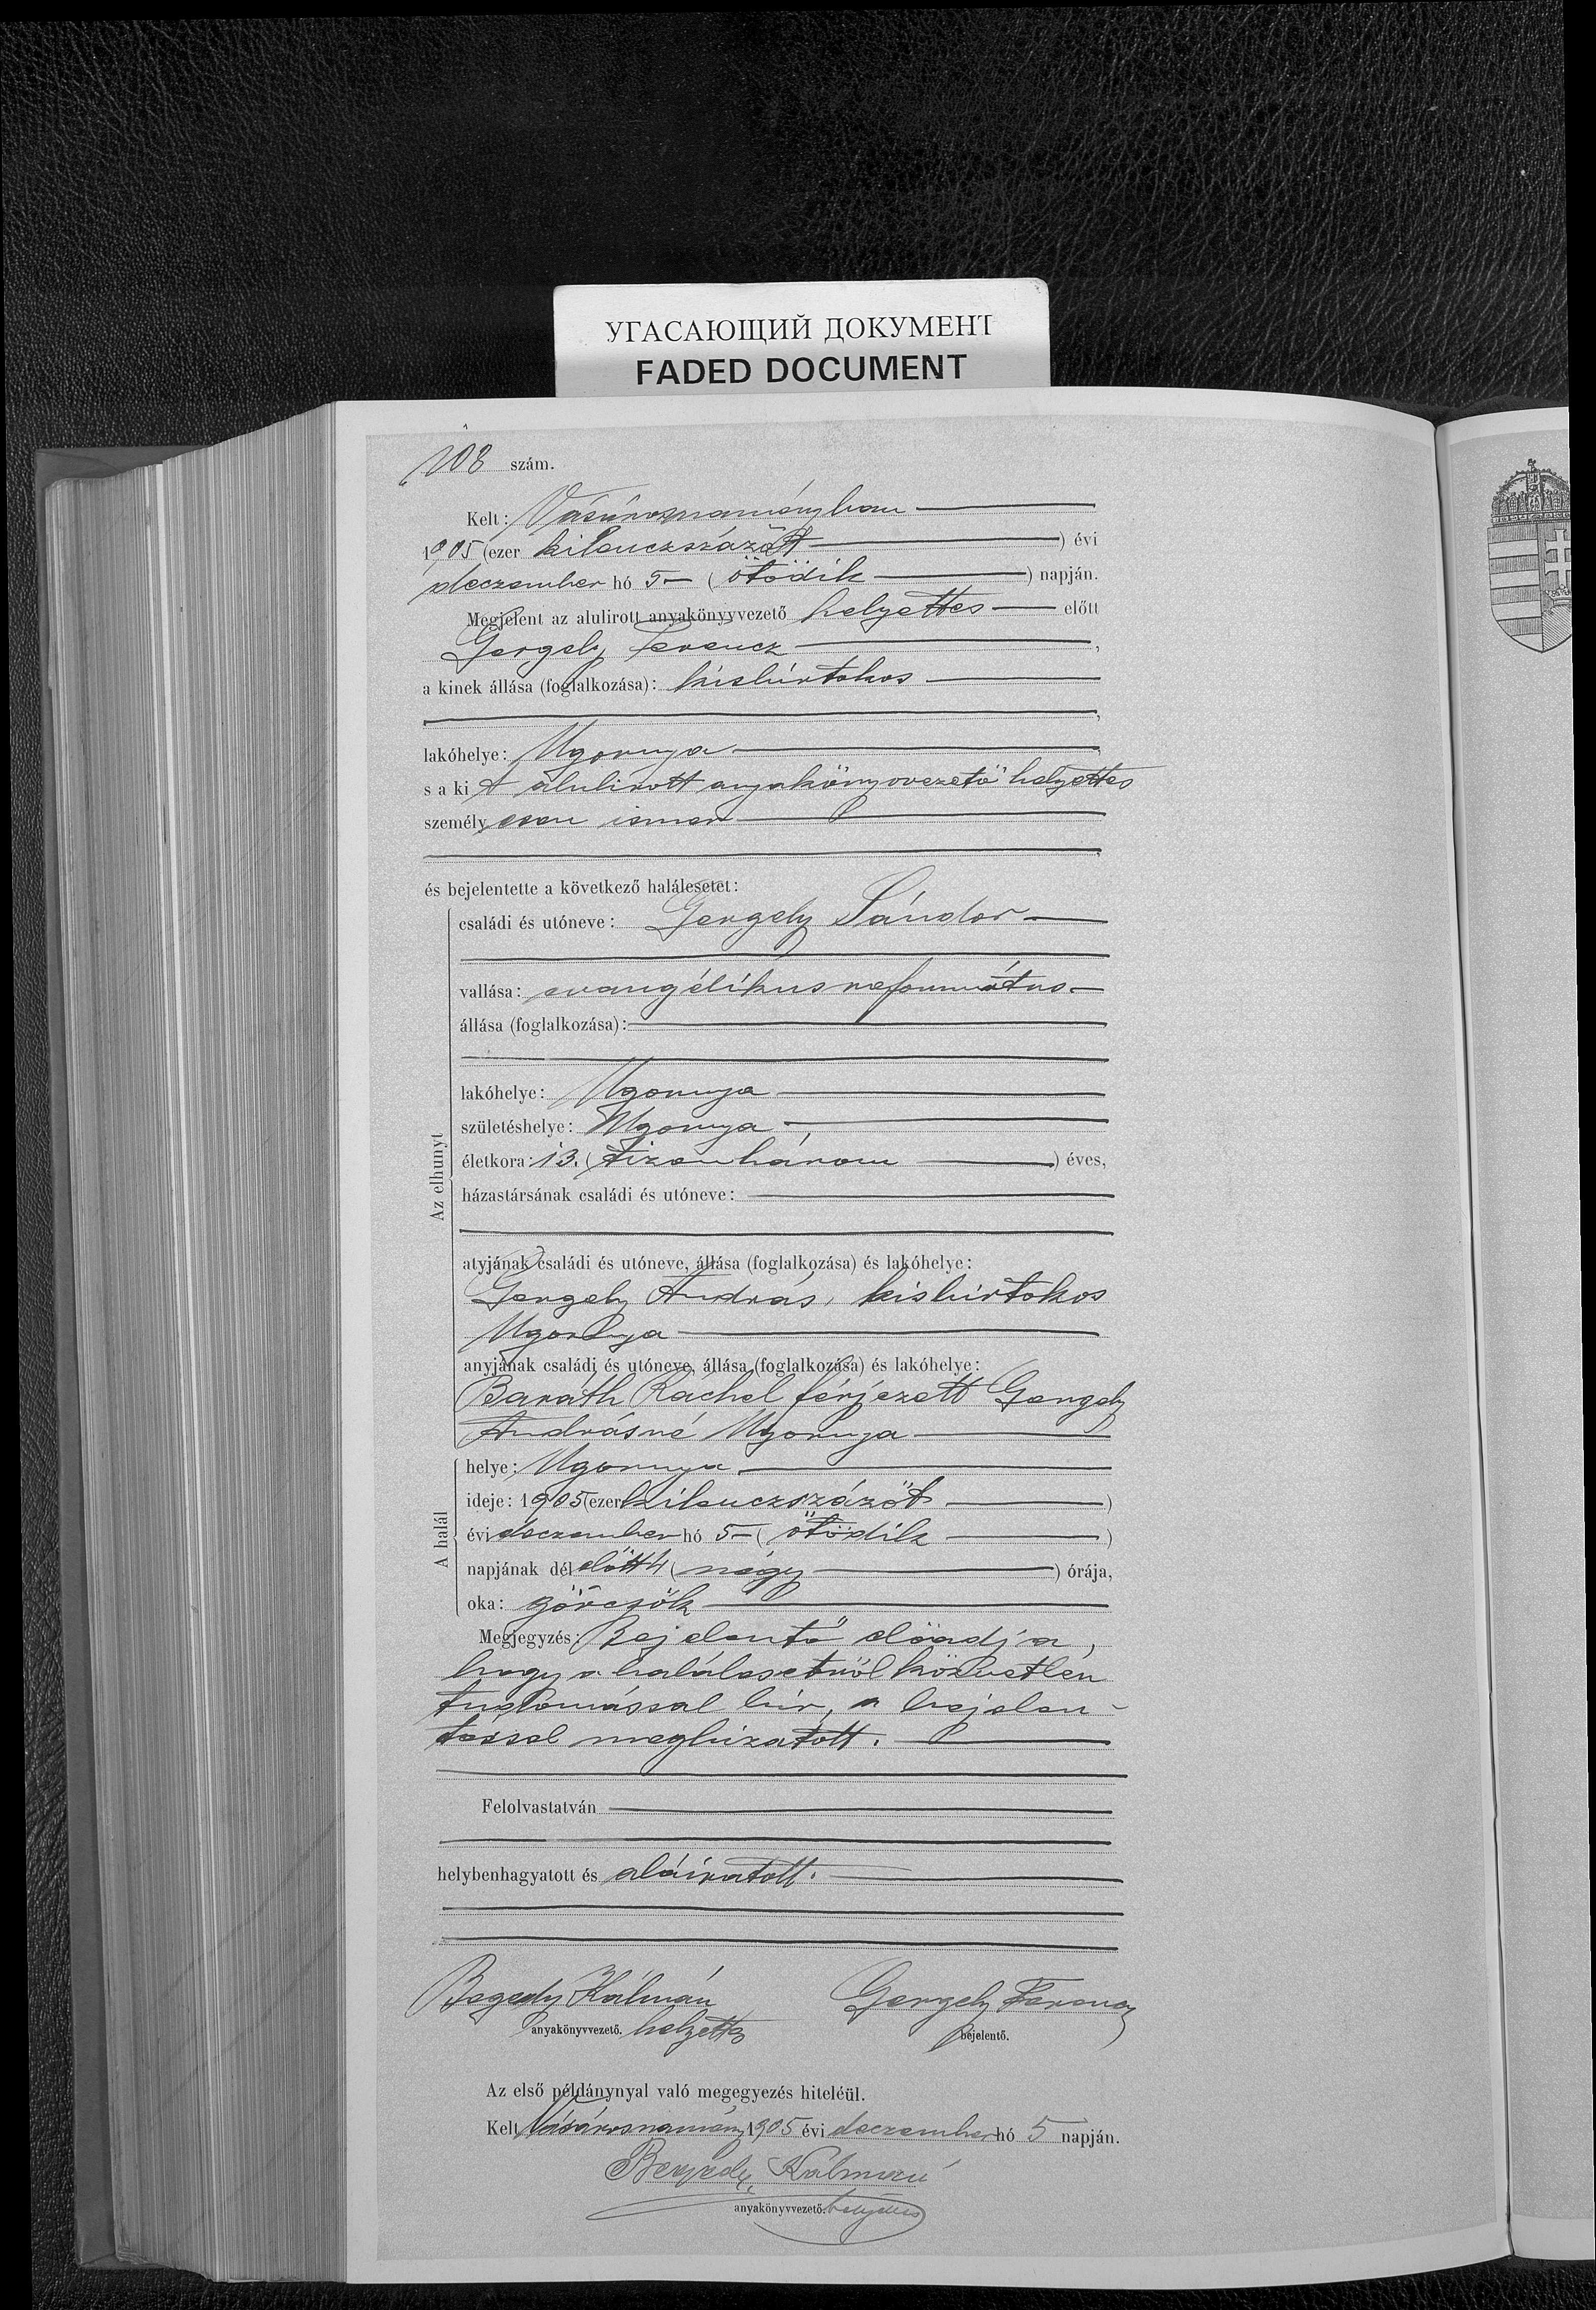 УГАСАЮЩИЙ ДОКУМЕНТ
FADED DOCUMENT
108 szám.
Kelt: Vásárosnaményban
1905 (ezer kilenczszázöt ) évi
deczember hó 5 ( ötödik ) napján.
Megjelent az alulirott anyakönyvvezető helyettes előtt
Gergely Ferencz,
a kinek állása (foglalkozása): kisbirtokos
lakóhelye: Ugornya,
s a kit alulirott anyakönyvvezető helyettes
személyesen ismer
és bejelentette a következő halálesetet:
Az elhunyt
családi és utóneve: Gergely Sándor
vallása: evangélikus református
állása (foglalkozása):
lakóhelye: Ugornya
születéshelye: Ugornya
életkora: 13. ( tizenhárom ) éves,
házastársának családi és utóneve:
atyjának családi és utóneve, állása (foglalkozása) és lakóhelye:
Gergely András, kisbirtokos
Ugornya
anyjának családi és utóneve, állása (foglalkozása) és lakóhelye:
Baráth Ráchel férjezett Gergely
Andrásné Ugornya
A halál
helye: Ugornya
ideje: 1905 (ezer kilenczszázöt )
évi deczember hó 5 ( ötödik )
napjának délelőtt 4 ( négy ) órája,
oka: görcsök
Megjegyzés: Bejelentő előadja,
hogy a halálesetről közvetlen
tudomással bír, a bejelen-
téssel megbizatott.
Felolvastatván
helybenhagyatott és aláiratott.
Kálmán Gergely Ferencz
anyakönyvvezető. helyettes bejelentő.
Az első példánynyal való megegyezés hiteléül.
Kelt Vásárosnamény 1905 évi deczember hó 5 napján.
Kálmán
anyakönyvvezető. helyettes